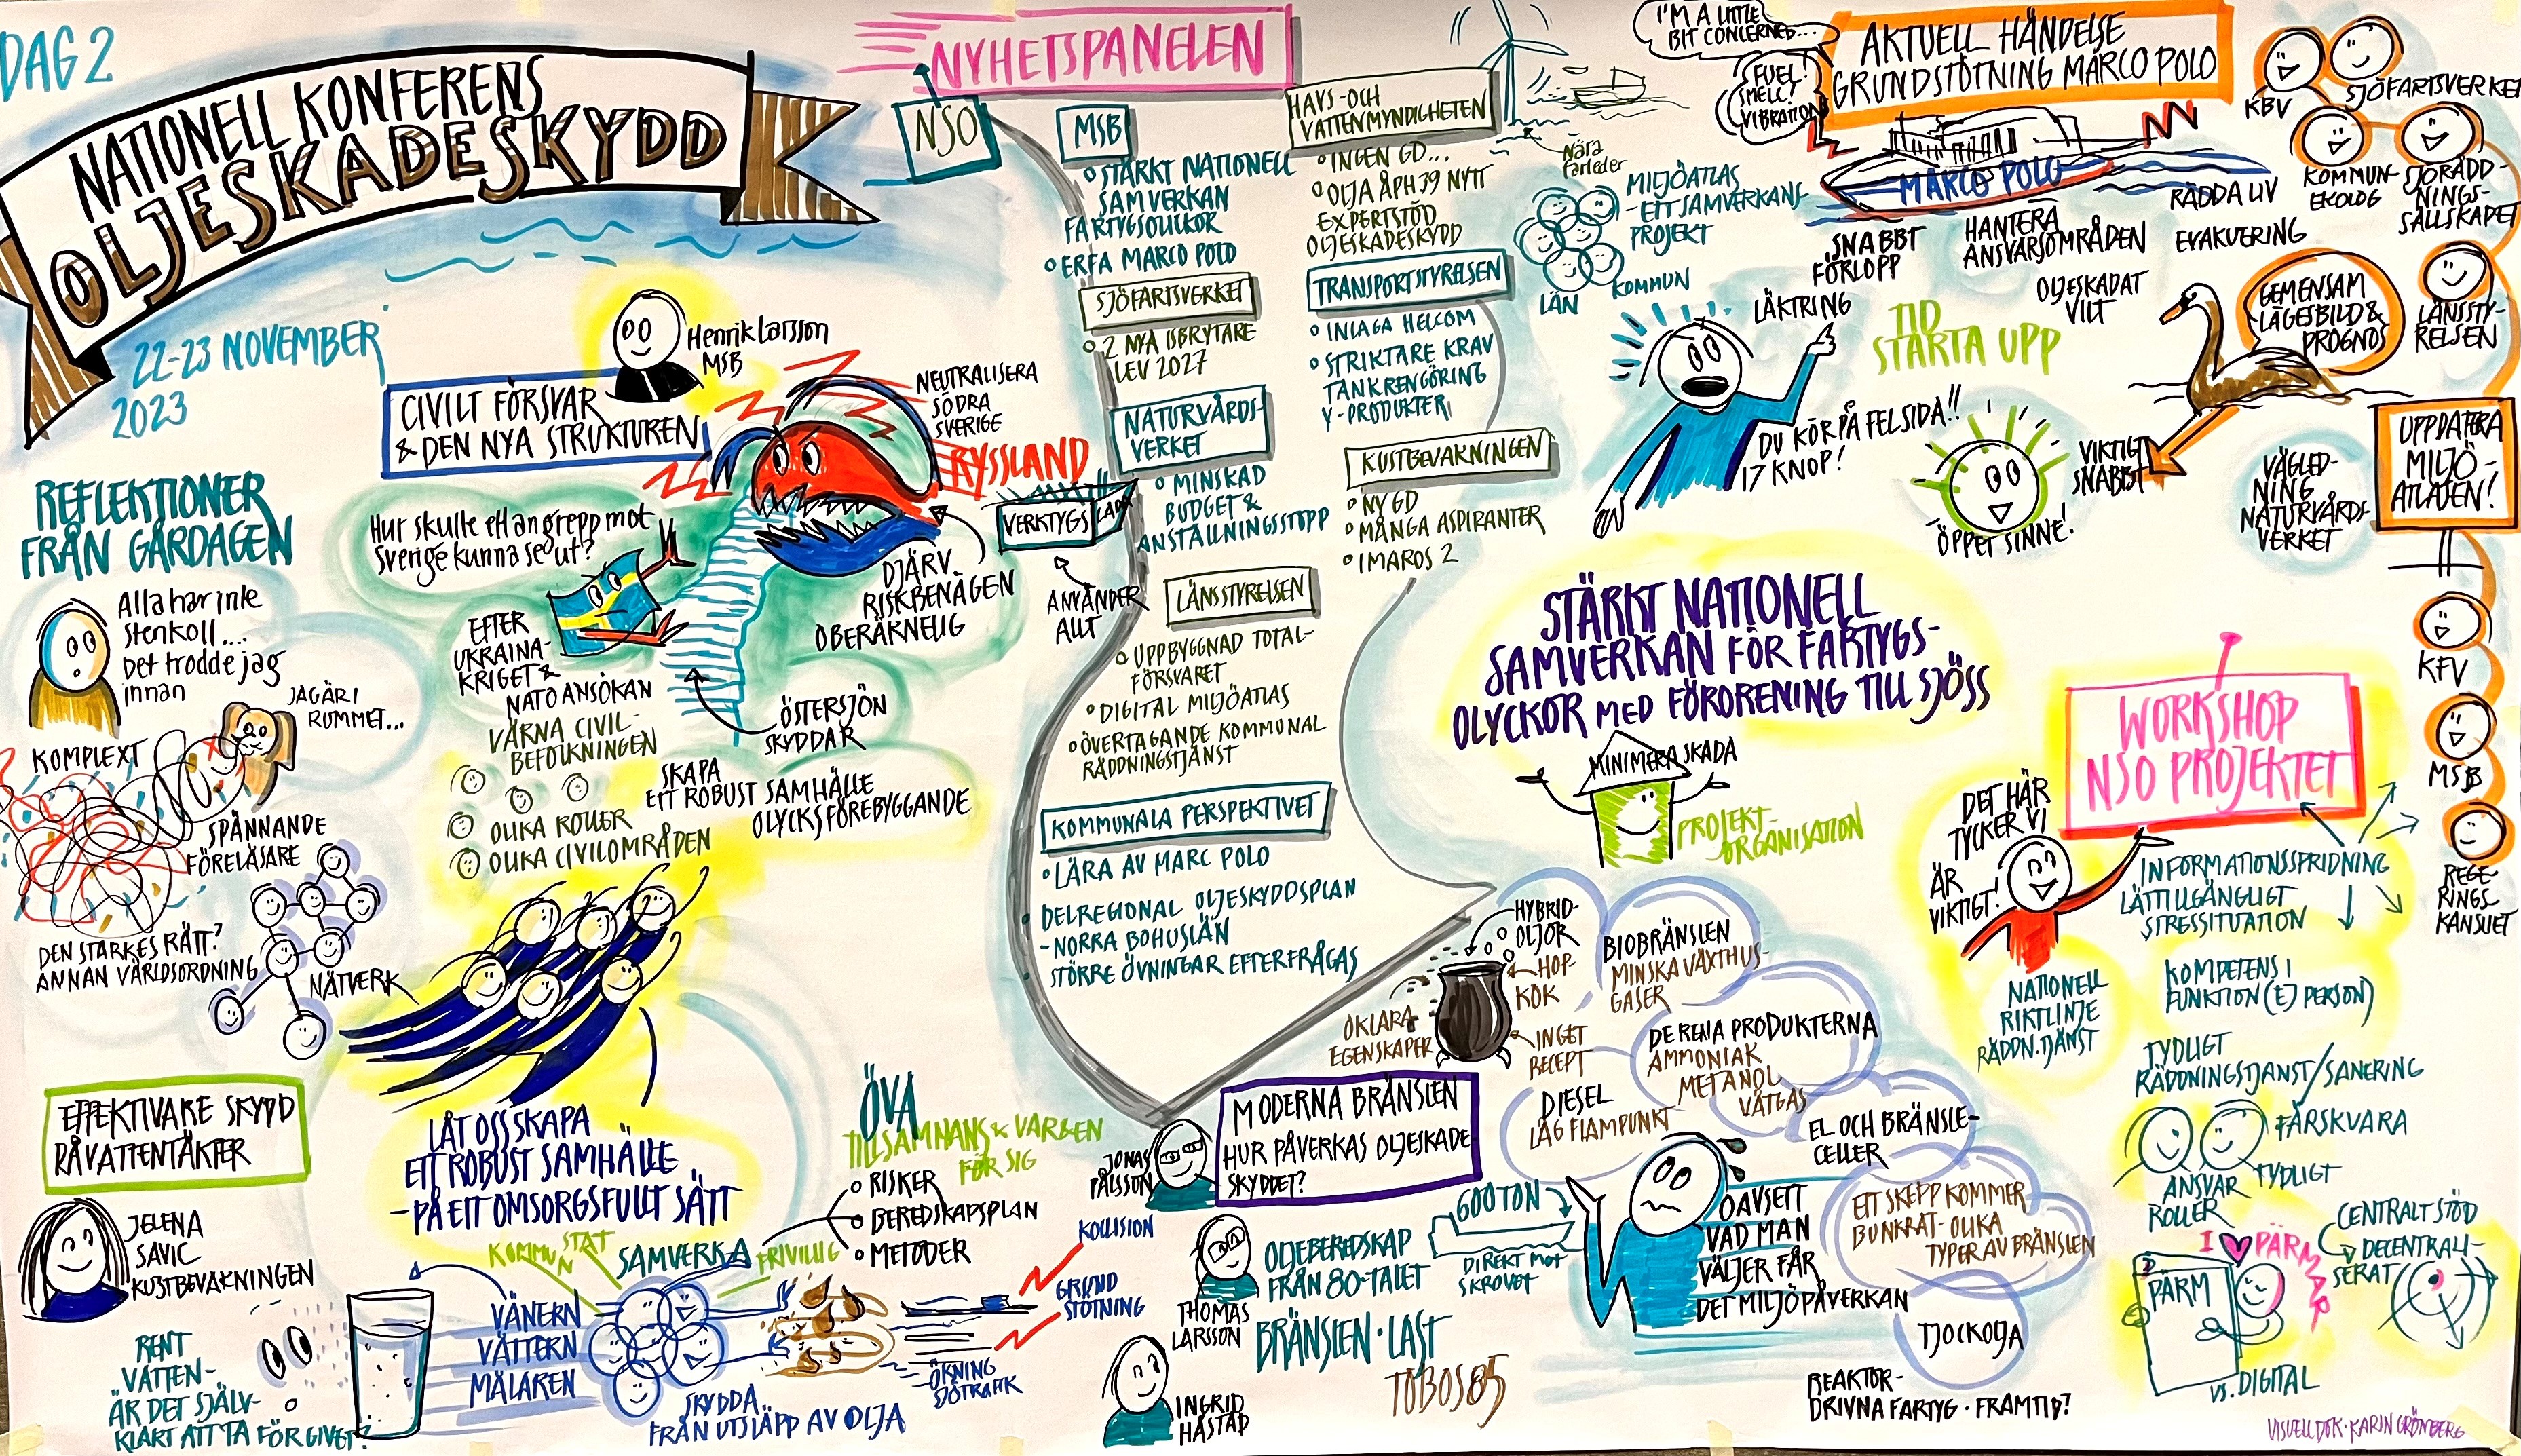 DAG 2
NATIONELL KONFERENS
OLJESKADESKYDD
22-23 NOVEMBER
2023
REFLEKTIONER
FRÅN GÅRDAGEN
Alla har inte
stenkoll....
Det trodde jag
innan
JAG ÄR I
RUMMET...
KOMPLEXT
SPÄNNANDE
FÖRELÄSARE
DEN STARKES RÄTT?
ANNAN VÄRLDSORDNING
NÄTVERK
Henrik Larsson
MSB
CIVILT FÖRSVAR
& DEN NYA STRUKTUREN
Hur skulle ett angrepp mot
Sverige kunna se ut?
NEUTRALISERA
SÖDRA
SVERIGE
RYSSLAND
DJÄRV
RISKBENÄGEN
OBERÄKNELIG
VERKTYGSLÅDA
ANVÄNDER
ALLT
EFTER
UKRAINA-
KRIGET &
NATO ANSÖKAN
VÄRNA CIVIL-
BEFOLKNINGEN
OLIKA ROLLER
OLIKA CIVILOMRÅDEN
ÖSTERSJÖN
SKYDDAR
SKAPA
ETT ROBUST SAMHÄLLE
OLYCKSFÖREBYGGANDE
LÅT OSS SKAPA
ETT ROBUST SAMHÄLLE
-PÅ ETT OMSORGSFULLT SÄTT
EFFEKTIVARE SKYDD
RÅVATTENTÄKTER
JELENA
SAVIC
KUSTBEVAKNINGEN
RENT
VATTEN-
ÄR DET SJÄLV-
KLART ATT TA FÖR GIVET?
VÄNERN
VÄTTERN
MÄLAREN
KOMMUN
STAT
SAMVERKA
FRIVILLIG
SKYDDA
FRÅN UTSLÄPP AV OLJA
ÖVA
TILLSAMMANS & VAR EN
FÖR SIG
RISKER
BEREDSKAPSPLAN
METODER
KOLLISION
GRUND
STÖTNING
ÖKNING
SJÖTRAFIK
NYHETSPANELEN
NSO
MSB
STÄRKT NATIONELL
SAMVERKAN
FARTYGSOLYCKOR
ERFA MARCO POLO
SJÖFARTSVERKET
2 NYA ISBRYTARE
LEV 2027
NATURVÅRDS-
VERKET
MINSKAD
BUDGET &
ANSTÄLLNINGSSTOPP
LÄNSSTYRELSEN
UPPBYGGNAD TOTAL-
FÖRSVARET
DIGITAL MILJÖATLAS
ÖVERTAGANDE KOMMUNAL
RÄDDNINGSTJÄNST
KOMMUNALA PERSPEKTIVET
LÄRA AV MARC POLO
DELREGIONAL OLJESKYDDSPLAN
-NORRA BOHUSLÄN
STÖRRE ÖVNINGAR EFTERFRÅGAS
HAVS-OCH
VATTENMYNDIGHETEN
INGEN GD...
OLJA ÅPH 39 NYTT
EXPERTSTÖD
OLJESKADESKYDD
TRANSPORTSTYRELSEN
INLAGA HELCOM
STRIKTARE KRAV
TANKRENGÖRING
Y-PRODUKTER
KUSTBEVAKNINGEN
NY GD
MÅNGA ASPIRANTER
IMAROS 2
Nära
farleder
MILJÖATLAS
-ETT SAMVERKANS-
PROJEKT
LÄN
KOMMUN
I'M A LITTLE
BIT CONCERNED...
FUEL!
SMELL!
VIBRATION
AKTUELL HÄNDELSE
GRUNDSTÖTNING MARCO POLO
MARCO POLO
KBV
SJÖFARTSVERKET
KOMMUN-
EKOLOG
SJÖRÄDD-
NINGS-
SÄLLSKAPET
RÄDDA LIV
SNABBT
FÖRLOPP
HANTERA
ANSVARSOMRÅDEN
EVAKUERING
LÄKTRING
OLJESKADAT
VILT
TID
STARTA UPP
GEMENSAM
LÄGESBILD &
PROGNOS
LÄNSSTY-
RELSEN
DU KÖR PÅ FEL SIDA!!
17 KNOP!
VIKTIGT
SNABBT
ÖPPET SINNE!
VÄGLED-
NING
NATURVÅRDS-
VERKET
UPPDATERA
MILJÖ-
ATLASEN!
KFV
MSB
REGE-
RINGS-
KANSLIET
STÄRKT NATIONELL
SAMVERKAN FÖR FARTYGS-
OLYCKOR MED FÖRORENING TILL SJÖSS
MINIMERA SKADA
PROJEKT-
ORGANISATION
WORKSHOP
NSO PROJEKTET
DET HÄR
TYCKER VI
ÄR
VIKTIGT!
INFORMATIONSSPRIDNING
LÄTTILLGÄNGLIGT
STRESSITUATION
KOMPETENS I
FUNKTION (EJ PERSON)
NATIONELL
RIKTLINJE
RÄDDN.TJÄNST
TYDLIGT
RÄDDNINGSTJÄNST/SANERING
FÄRSKVARA
ANSVAR
ROLLER
TYDLIGT
CENTRALT STÖD
DECENTRALI-
SERAT
I PÄRMAR
PÄRM
VS. DIGITAL
JONAS
PÅLSSON
MODERNA BRÄNSLEN
HUR PÅVERKAS OLJESKADE-
SKYDDET?
THOMAS
LARSSON
INGRID
HÅSTAD
OLJEBEREDSKAP
FRÅN 80-TALET
BRÄNSLEN · LAST
TOBOS 85
600 TON
DIREKT MOT
SKROVET
HYBRID-
OLJOR
HOP-
KOK
INGET
RECEPT
OKLARA
EGENSKAPER
BIOBRÄNSLEN
MINSKA VÄXTHUS-
GASER
DE RENA PRODUKTERNA
AMMONIAK
METANOL
VÄTGAS
DIESEL
LÅG FLAMPUNKT
EL OCH BRÄNSLE-
CELLER
OAVSETT
VAD MAN
VÄLJER FÅR
DET MILJÖPÅVERKAN
ETT SKEPP KOMMER
BUNKRAT - OLIKA
TYPER AV BRÄNSLEN
TJOCKOLJA
REAKTOR-
DRIVNA FARTYG · FRAMTID?
VISUELL DOK · KARIN GRÖNBERG